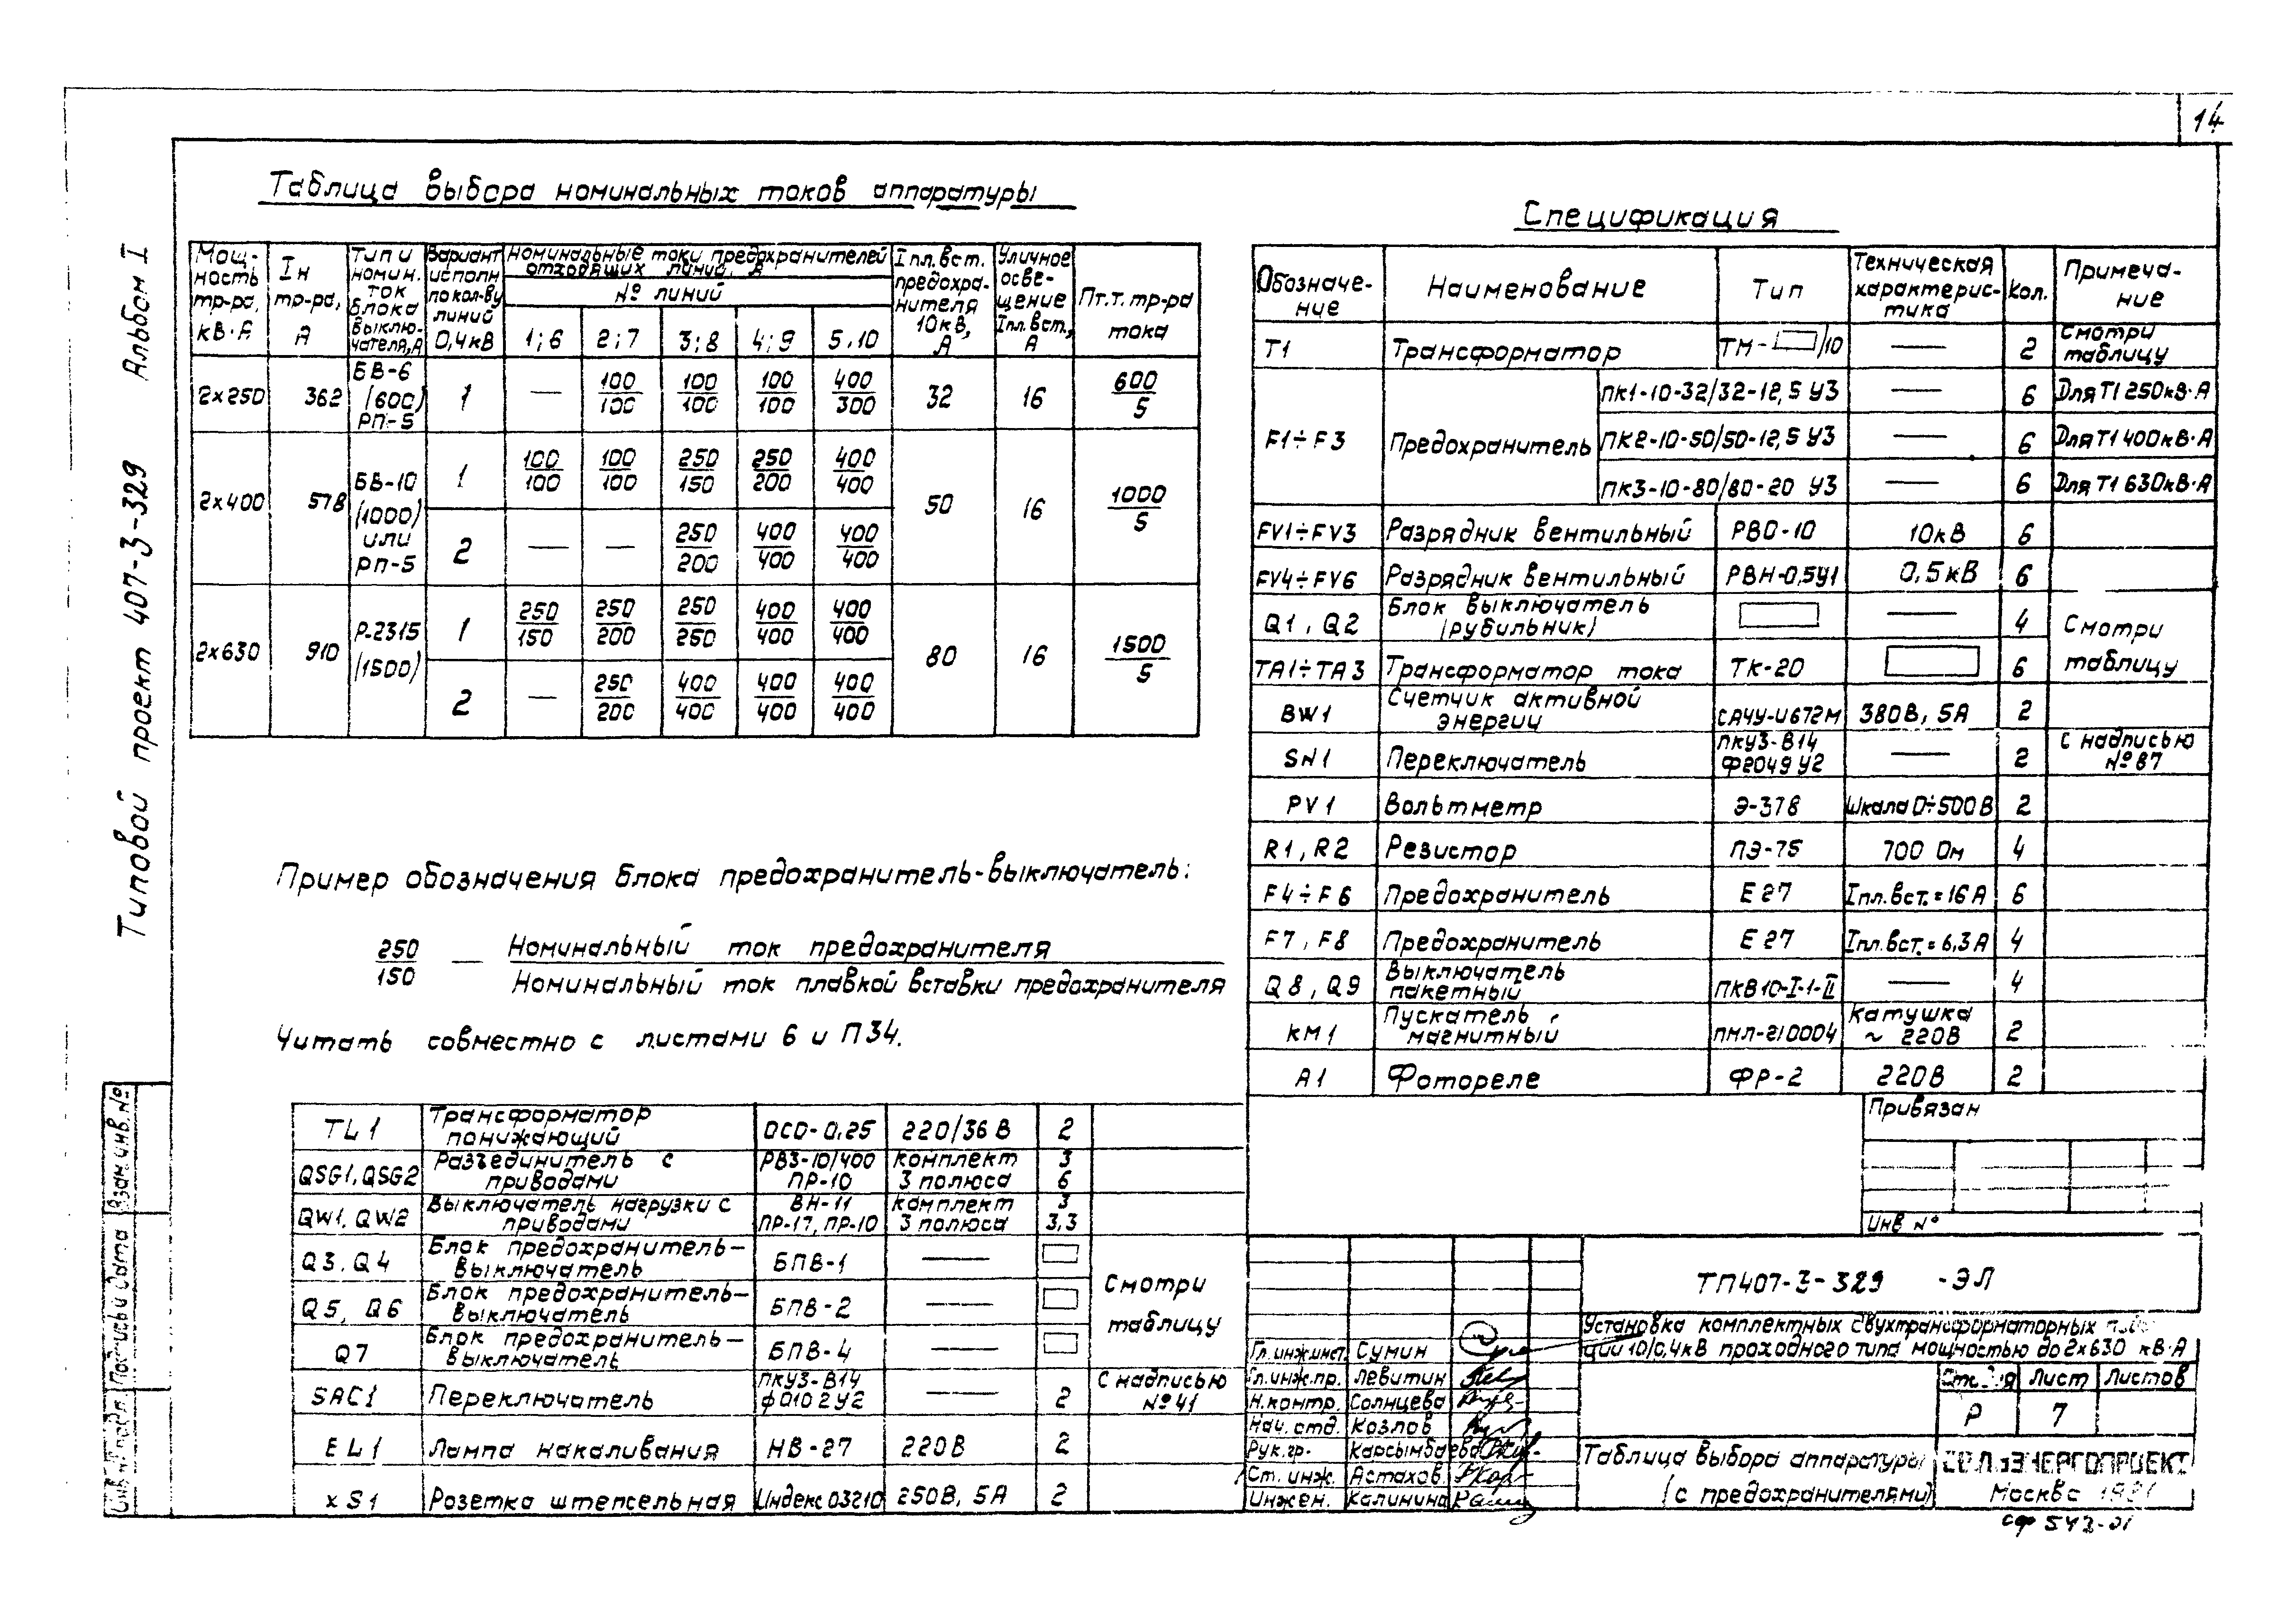 14
Альбом I
Типовой проект 407-3-329
Таблица выбора номинальных токов аппаратуры
Мощность тр-ра, кВ·А | Iн тр-ра, А | Тип и номин. ток блока выключателя, А | Вариант исполн по кол-ву линий 0,4кВ | Номинальные токи предохранителей отходящих линий, А | Iпл.вст. предохранителя 10кВ, А | Уличное освещение Iпл.вст., А | Пт.т. тр-ра тока
№ линий
1;6 | 2;7 | 3;8 | 4;9 | 5,10
2×250 | 362 | БВ-6 (600) РП-5 | 1 | — | 100/100 | 100/100 | 100/100 | 400/300 | 32 | 16 | 600/5
2×400 | 578 | БВ-10 (1000) или РП-5 | 1 | 100/100 | 100/100 | 250/150 | 250/200 | 400/400 | 50 | 16 | 1000/5
2 | — | — | 250/200 | 400/400 | 400/400
2×630 | 910 | Р-2315 (1500) | 1 | 250/150 | 250/200 | 250/250 | 400/400 | 400/400 | 80 | 16 | 1500/5
2 | — | 250/200 | 400/400 | 400/400 | 400/400
Пример обозначения блока предохранитель-выключатель:
250/150 — Номинальный ток предохранителя
Номинальный ток плавкой вставки предохранителя
Читать совместно с листами 6 и П34.
Спецификация
Обозначение | Наименование | Тип | Техническая характеристика | Кол. | Примечание
Т1 | Трансформатор | ТМ- /10 | — | 2 | Смотри таблицу
F1÷F3 | Предохранитель | ПК1-10-32/32-12,5 У3 | — | 6 | Для Т1 250кВ·А
ПК2-10-50/50-12,5 У3 | — | 6 | Для Т1 400кВ·А
ПК3-10-80/80-20 У3 | — | 6 | Для Т1 630кВ·А
FV1÷FV3 | Разрядник вентильный | РВО-10 | 10кВ | 6
FV4÷FV6 | Разрядник вентильный | РВН-0,5У1 | 0,5кВ | 6
Q1, Q2 | Блок выключатель (рубильник) | — | 4 | Смотри таблицу
TA1÷TA3 | Трансформатор тока | ТК-20 | 6
BW1 | Счетчик активной энергии | САЧУ-И672М | 380В, 5А | 2
SN1 | Переключатель | ПКУ3-В14 Ф2049У2 | — | 2 | С надписью №87
PV1 | Вольтметр | Э-378 | Шкала 0÷500В | 2
R1, R2 | Резистор | ПЭ-75 | 700 Ом | 4
F4÷F6 | Предохранитель | Е27 | Iпл.вст. = 16 А | 6
F7, F8 | Предохранитель | Е27 | Iпл.вст. = 6,3 А | 4
Q8, Q9 | Выключатель пакетный | ПКВ10-I-1-II | — | 4
КМ1 | Пускатель магнитный | ПМЛ-210004 | Катушка ~ 220В | 2
А1 | Фотореле | ФР-2 | 220В | 2
TL1 | Трансформатор понижающий | ОСО-0,25 | 220/36 В | 2
QSG1, QSG2 | Разъединитель с приводами | РВЗ-10/400 ПР-10 | комплект 3 полюса | 3 6
QW1, QW2 | Выключатель нагрузки с приводами | ВН-11 ПР-17, ПР-10 | комплект 3 полюса | 3 3,3
Q3, Q4 | Блок предохранитель-выключатель | БПВ-1 | —
Q5, Q6 | Блок предохранитель-выключатель | БПВ-2 | — | Смотри таблицу
Q7 | Блок предохранитель-выключатель | БПВ-4
SAC1 | Переключатель | ПКУ3-В14 Ф0102У2 | — | 2 | С надписью №41
EL1 | Лампа накаливания | НВ-27 | 220В | 2
XS1 | Розетка штепсельная | Индекс 03210 | 250В, 5А | 2
Привязан
Инв №
ТП407-3-329 -ЭЛ
Установка комплектных двухтрансформаторных
ций 10/0,4кВ проходного типа мощностью до 2×630 кВ·А
Гл.инж.инст. Сумин
Гл.инж.пр. Левитин
Н.контр. Солнцева
Нач.отд. Козлов
Рук.гр. Карсымбаева
Ст.инж. Астахов
Инжен. Калинина
Лист | Листов
Р | 7
Таблица выбора аппаратуры
(с предохранителями)
Москва
сф 542-01
Взам.инв.№
Подпись и дата
Инв.№ подл.